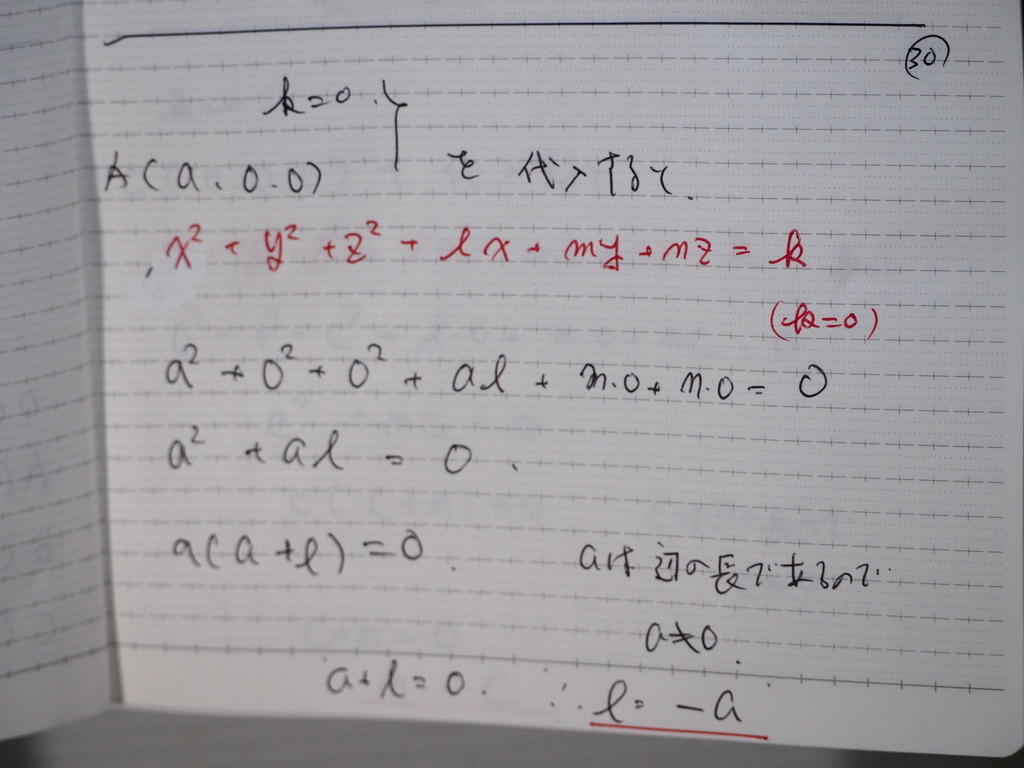 30
k=0.
A(a,0.0) を 代入すると.
x² + y² + z² + lx + my + nz = k
(k=0)
a² + 0² + 0² + al + m.0 + n.0 = 0
a² + al = 0.
a(a+l)=0. aは 辺の長であるので..
a≠0.
a+l=0. ∴ l = -a